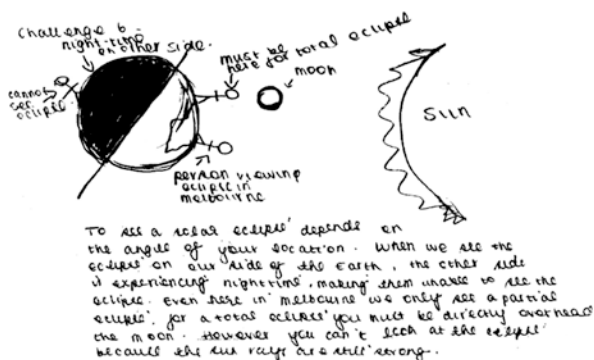 Challenge 6
night-time
on other side.
must be
here for total eclipse
moon
cannot
see
eclipse
Sun
person viewing
eclipse in
melbourne
To see a solar eclipse depends on
the angle of your location. When we see the
eclipse on our side of the Earth, the other side
is experiencing nighttime, making them unable to see the
eclipse. Even here in melbourne we only see a partial
eclipse, for a total eclipse you must be directly overhead
the moon. However you can't look at the eclipse
because the sun rays are still strong.